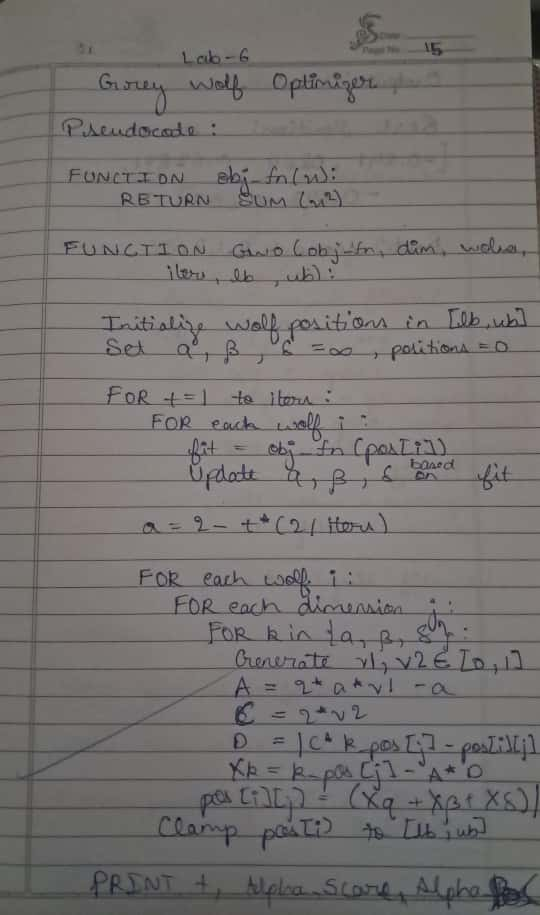 Date
Page No. 15
Lab-6
Grey Wolf Optimizer
Pseudocode :
FUNCTION obj-fn(x):
RETURN SUM (x²)
FUNCTION GWO (obj-fn, dim, wolves,
iters, lb, ub):
Initialize wolf positions in [lb, ub]
Set α, β, δ = ∞, positions = 0
FOR t=1 to iters :
FOR each wolf i :
fit = obj-fn (pos[i])
Update α, β, δ based on fit
a = 2 - t* (2/iters)
FOR each wolf i:
FOR each dimension j:
FOR k in {α, β, δ}:
Generate r1, r2 ∈ [0, 1]
A = 2* a* r1 - a
C = 2* r2
D = |C* k-pos[j] - pos[i][j]
Xk = k-pos[j] - A* D
pos[i][j] = (Xα + Xβ + Xδ)/
Clamp pos[i] to [lb, ub]
PRINT t, Alpha-Score, Alpha